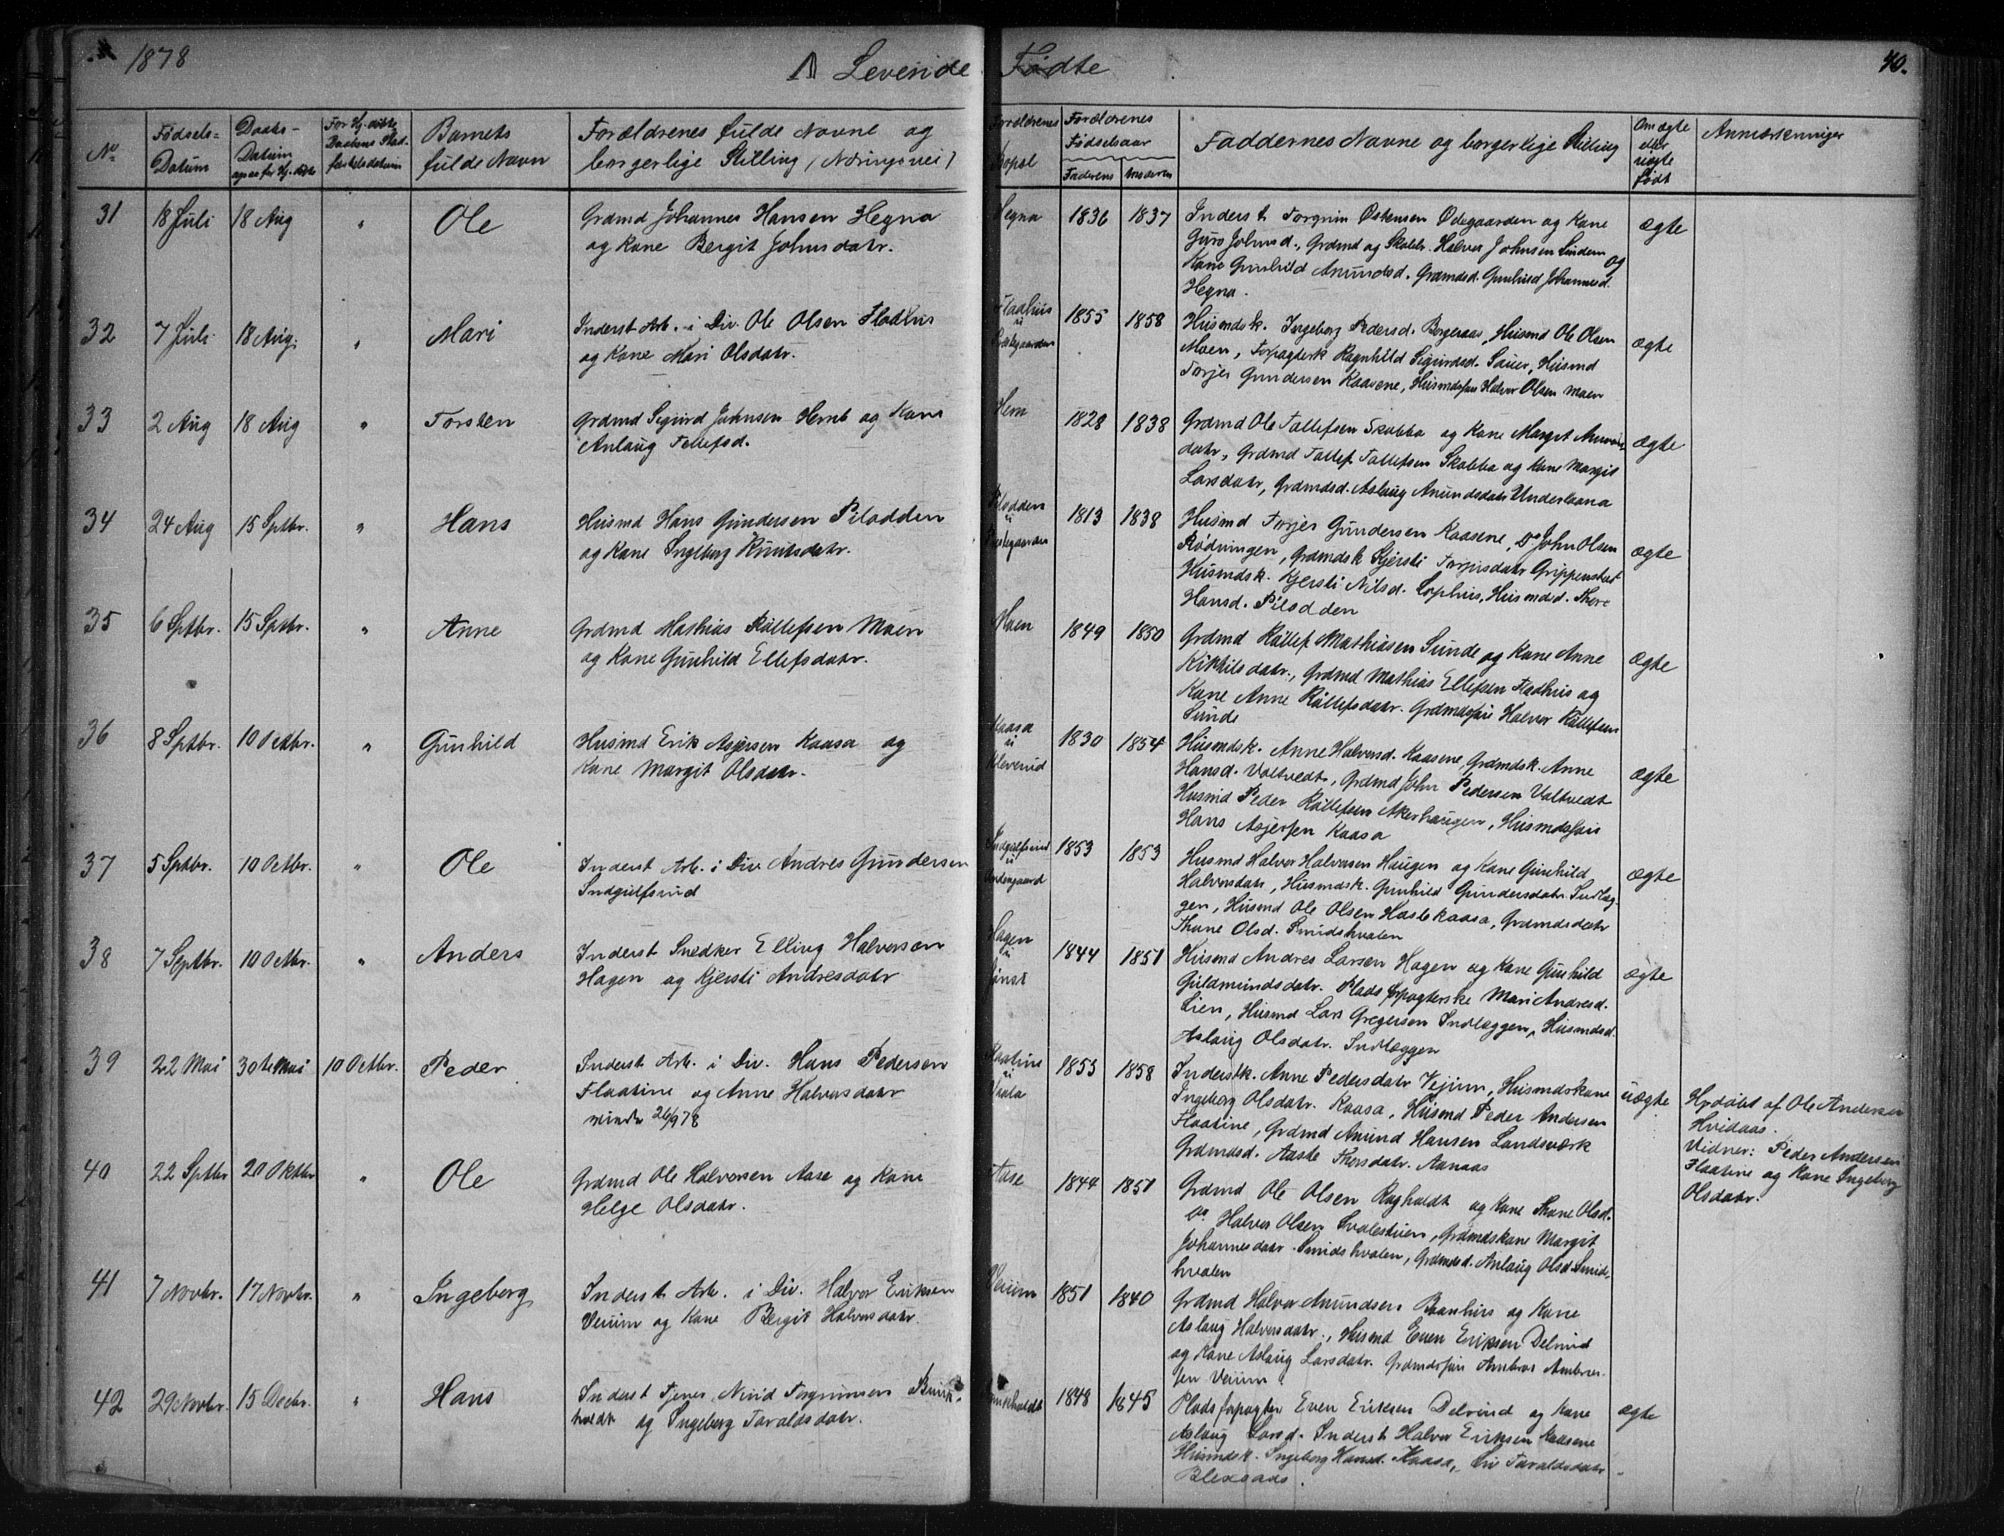 1878
Levende Fødte
40.
No
Fødsels-
Datum
Daabs-
Datum
Barnets
fulde Navn
Forældrenes fulde Navne og
borgerlige Stilling (Næringsvei)
Forældrenes
Bopæl
Forældrenes
Fødselsaar
Faderens
Moderens
Faddernes Navne og borgerlige Stilling
Om ægte
eller
uægte
født
Anmærkninger
31
18 Juli
18 Aug
"
Ole
Grdmd Johannes Hansen Hegna
og Kone Bergit Johnsdatr.
Hegna
1836
1837
Inderst Torgrim Østensen Ødegaarden og Kone
Guro Johnsd., Grdmd og Skolelr. Halvor Johnsen Lindem og
Kone Gunhild Anundsd. Grdmdsd. Gunhild Johannesd.
Hegna.
ægte
32
7 Juli
18 Aug.
"
Mari
Inderst Arb. i Div. Ole Olsen Flodhus
og Kone Mari Olsdatr.
Flodhus
u
Prestegaarden
1855
1858
Husmdsk. Ingeborg Pedersd. Borgeraas, Husmd Ole Olsen
Moen, Forpagterk Ragnhild Sigurdsd. Sauer, Husmd
Torjer Gundersen Kaasene, Husmdssøn Halvor Olsen Moen
ægte
33
2 Aug
18 Aug
"
Torsten
Grdmd Sigurd Johnsen Hem og Kone
Anlaug Tollefsd.
Hem
1828
1838
Grdmd Ole Tollefsen Skobba og Kone Margit Anunds-
datr, Grdmd Tollef Tollefsen Skobba og Kone Margit
Larsdatr, Grdmdsd. Aslaug Anundsdatr Underlaana
ægte
34
24 Aug
15 Sptbr.
"
Hans
Husmd Hans Gundersen Pilodden
og Kone Ingeborg Knutsdatr.
Pilodden
u
Prestegaarden
1813
1838
Husmd Torjer Gundersen Kaasene, Do John Olsen
Rødningen, Grdmdsk Kjersti Torjusdatr Grippenstul
Husmdsk. Kjersti Nilsd. Lophus, Husmdsd. Thore
Hansd. Pilodden
ægte
35
6 Sptbr.
15 Sptbr.
"
Anne
Grdmd Mathias Rollefsen Moen
og Kone Gunhild Ellefsdatr.
Moen
1849
1850
Grdmd Rollef Mathiasen Sunde og Kone Anne
Kittilsdatr., Grdmd Mathias Ellefsen Flodhus og
Kone Anne Rollefsdatr. Grdmdssøn Halvor Rollefsen
Sunde
ægte
36
8 Sptbr.
10 Octbr.
"
Gunhild
Husmd Erik Asjersen Kaasa og
Kone Margit Olsdatr.
Kaasa
u
Kleverud
1830
1854
Husmdsk. Anne Halvorsd. Kaasene, Grdmdsk. Anne
Hansd. Valtvedt, Grdmd John Pedersen Valtvedt
Husmd Peder Rollefsen Akerhaugen, Husmdssøn
Hans Asjersen Kaasa
ægte
37
5 Sptbr.
10 Octbr.
"
Ole
Inderst Arb. i Div Andres Gundersen
Indgulfsrud
Indgulfsrud
u
1853
1853
Husmd Halvor Halvorsen Haugen og Kone Gunhild
Halvorsdatr, Husmdsk. Gunhild Gundersdatr Indlæg-
gen, Husmd Ole Olsen Haslekaasa, Grdmdsdatr
Thone Olsd. Smidshvalen
ægte
38
7 Septbr.
10 Octbr.
"
Anders
Inderst Snedker Elling Halvorsen
Hagen og Kjersti Andresdatr
Hagen
u
1844
1851
Husmd Andres Larsen Hagen og Kone Gunhild
Guldmundsdatr. Pladsforpagterske Mari Andresd.
Lien, Husmd Lars Gregersen Indlæggen, Husmdsd.
Aslaug Olsdatr. Indlæggen
ægte
39
22 Mai
30te Mai
10 Octbr.
Peder
Inderst Arb. i Div. Hans Pedersen
Flaatine og Anne Halvorsdatr
26/9 78
Flaatine
u
1853
1858
Inderstk. Anne Pedersdatr Vejum, Husmdskone
Ingeborg Olsdatr. Kaasa, Husmd Peder Andersen
Flaatine, Grdmd Anund Hansen Landsværk
Grdmdsd. Aaste Thorsdatr. Aanaas
uægte
Hjdøbt af Ole Andersen
Hvidaas.
Vidner: Peder Andersen
Flaatine og Kone Ingeborg
Olsdatr.
40
22 Sptbr
20 Oktbr
"
Ole
Grdmd Ole Halvorsen Aase og Kone
Helge Olsdatr.
Aase
1844
1851
Grdmd Ole Olsen Rogholdt og Kone Thone Olsd.
Do Halvor Olsen Svalestuen, Grdmdskone Margit
Johannesdatr. Smidshvalen, Grdmdsd. Anlaug Olsd Smids-
hvalen
41
7 Novbr.
17 Novbr.
"
Ingeborg
Inderst Arb. i Div. Halvor Eriksen
Veium og Kone Bergit Halvorsdatr.
Veium
1851
1840
Grdmd Halvor Anundsen Baanhus og Kone
Aslaug Halvorsdatr., Husmd Even Eriksen Delvind
og Kone Aslaug Larsdatr. Grdmdssøn Ambros Ambros-
sen Veium
42
29 Novbr.
15 Decbr.
"
Hans
Inderst Tjener Nirid Torgrimsen
holdt og Ingeborg Taraldsdatr.
1848
1845
Pladsforpagter Even Eriksen Delvind og Kone
Aslaug Larsd. Inderst Halvor Eriksen Kaasene
Husmdsk. Ingeborg Hansd. Kaasa, Taraldsdatr
ægte